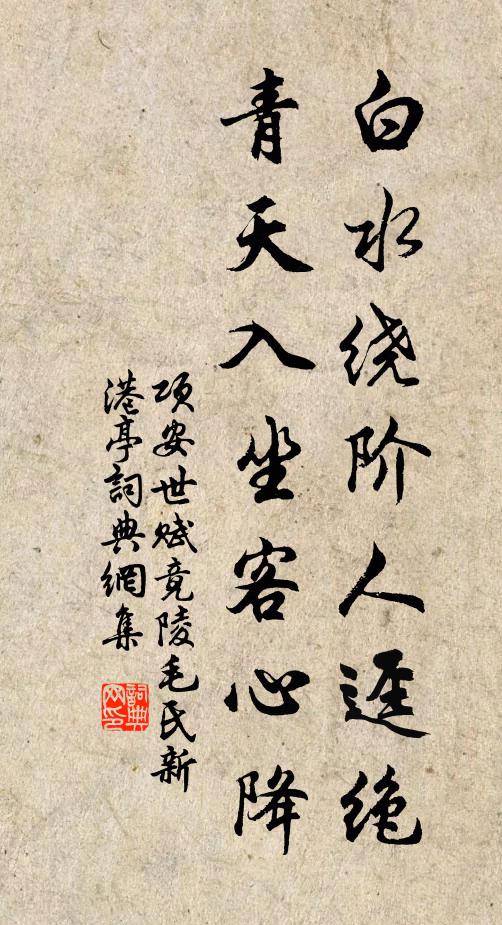 白水绕阶人迳绝
青天入坐客心降
项安世赋竟陵毛氏新
港亭詞典網集
詞典網印